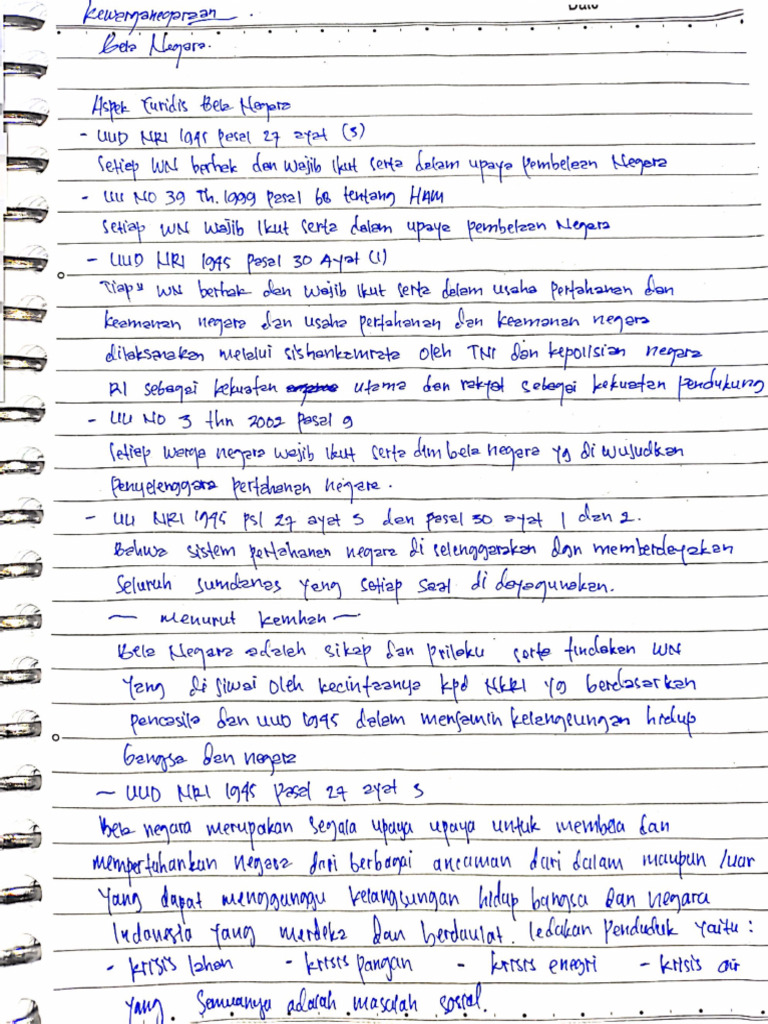 Kewarganegaraan
Bela Negara.
Aspek Yuridis Bela Negara
- UUD NRI 1945 pasal 27 ayat (3)
Setiap WN berhak dan wajib ikut serta dalam upaya pembelaan Negara
- UU NO 39 Th. 1999 pasal 68 tentang HAM
Setiap WN wajib ikut serta dalam upaya pembelaan Negara
- UUD NRI 1945 pasal 30 Ayat (1)
Tiap² WN berhak dan wajib ikut serta dalam usaha pertahanan dan
keamanan negara dan usaha pertahanan dan keamanan negara
dilaksanakan melalui sishankamrata oleh TNI dan kepolisian negara
RI sebagai kekuatan utama dan rakyat sebagai kekuatan pendukung
- UU NO 3 thn 2002 pasal 9
Setiap warga negara wajib ikut serta dlm bela negara yg di wujudkan
penyelenggara pertahanan negara.
- UU NRI 1945 psl 27 ayat 3 dan pasal 30 ayat 1 dan 2.
Bahwa sistem pertahanan negara di selenggarakan dgn memberdayakan
seluruh sumdanas yang setiap saat di dayagunakan.
~ menurut kemhan ~
Bela Negara adalah sikap dan prilaku serta tindakan WN
yang di jiwai oleh kecintaanya kpd NKRI yg berdasarkan
pancasila dan UUD 1945 dalam menjamin kelangsungan hidup
bangsa dan negara
~ UUD NRI 1945 pasal 27 ayat 3
Bela negara merupakan segala upaya upaya untuk membela dan
mempertahankan negara dari berbagai ancaman dari dalam maupun luar
yang dapat mengganggu kelangsungan hidup bangsa dan negara
Indonesia yang merdeka dan berdaulat. ledakan penduduk yaitu:
- krisis lahan - krisis pangan - krisis enegri - krisis air
yang semuanya adalah masalah sosial.